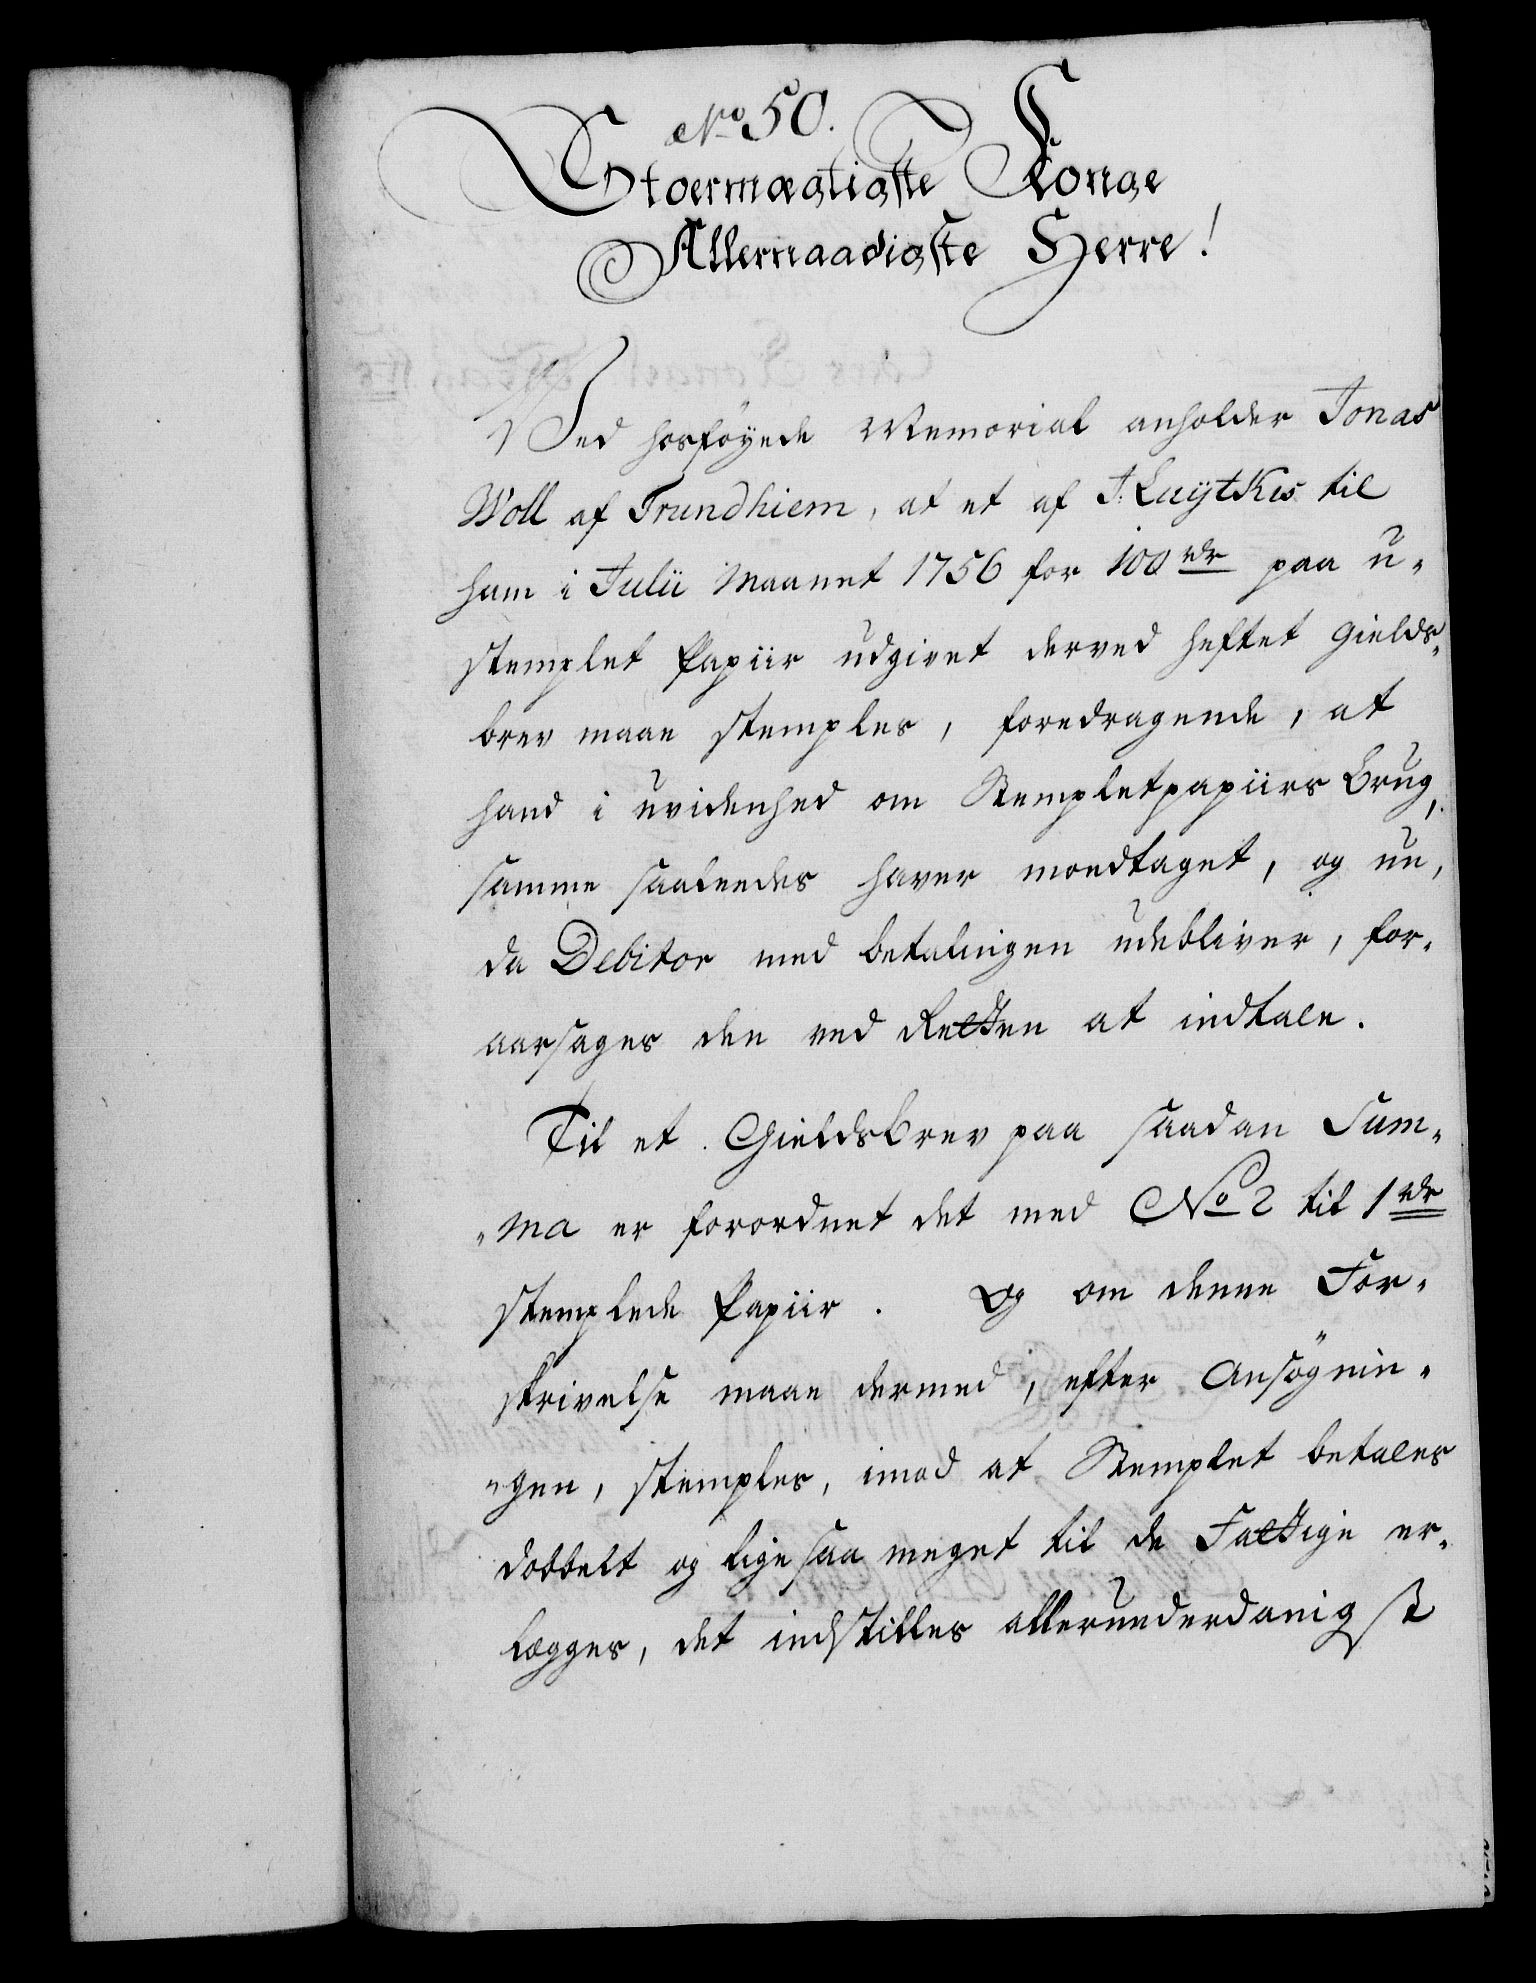 No 50.
Stoermægtigste Konge
Allernaadigste Herre!
Ved hosføyede Memorial anholder Jonas
Woll af Trundhiem, at et af J: Luÿtkis til
ham i Julii Maanet 1756 for 100 rdr paa u-
stemplet Papiir udgivet derved heftet gields-
brev maae stemples, foredragende, at
hand i uvidenhed om Stempletpapiirs Brug,
samme saaledes haver modtaget, og nu,
da Debitor med betalingen udebliver, for-
aarsages den ved Retten at indtale.
Til et Gieldsbrev paa saadan Sum-
"ma er forordnet det med No 2 til 1 rdr
stemplede Papiir. Og om denne For-
skrivelse maae dermed, efter Ansøgnin-
"gen, stemples, imod at Stemplet betales
dobbelt og ligesaa meget til de Fattige er-
lægges, det indstilles allerunderdanigst